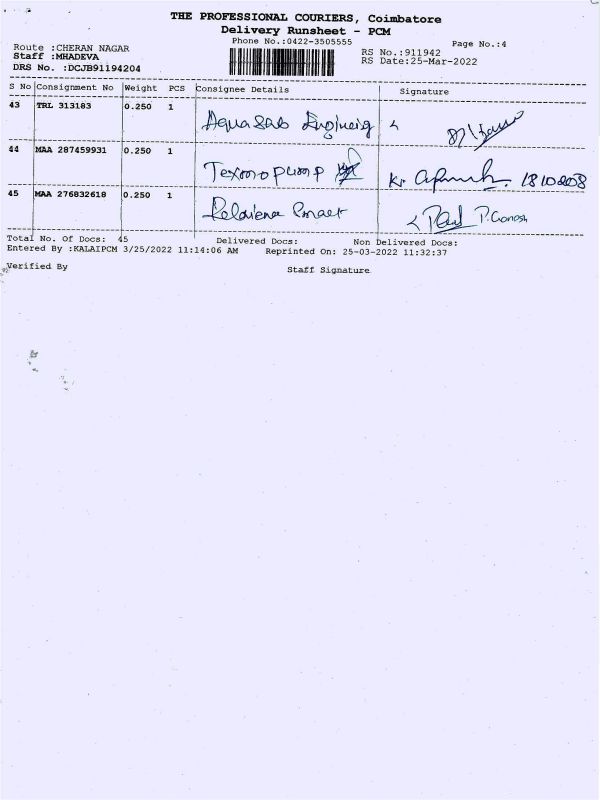 THE PROFESSIONAL COURIERS, Coimbatore
Delivery Runsheet - PCM
Phone No.:0422-3505555
Page No.:4
Route :CHERAN NAGAR
Staff :MHADEVA
DRS No. :DCJB91194204
RS No.:911942
RS Date:25-Mar-2022
S No Consignment No Weight PCS Consignee Details Signature
43 TRL 313183 0.250 1 Aqua Sub
44 MAA 287459931 0.250 1 Texmo pump
45 MAA 276832618 0.250 1
Total No. Of Docs: 45 Delivered Docs: Non Delivered Docs:
Entered By :KALAIPCM 3/25/2022 11:14:06 AM Reprinted On: 25-03-2022 11:32:37
Verified By Staff Signature